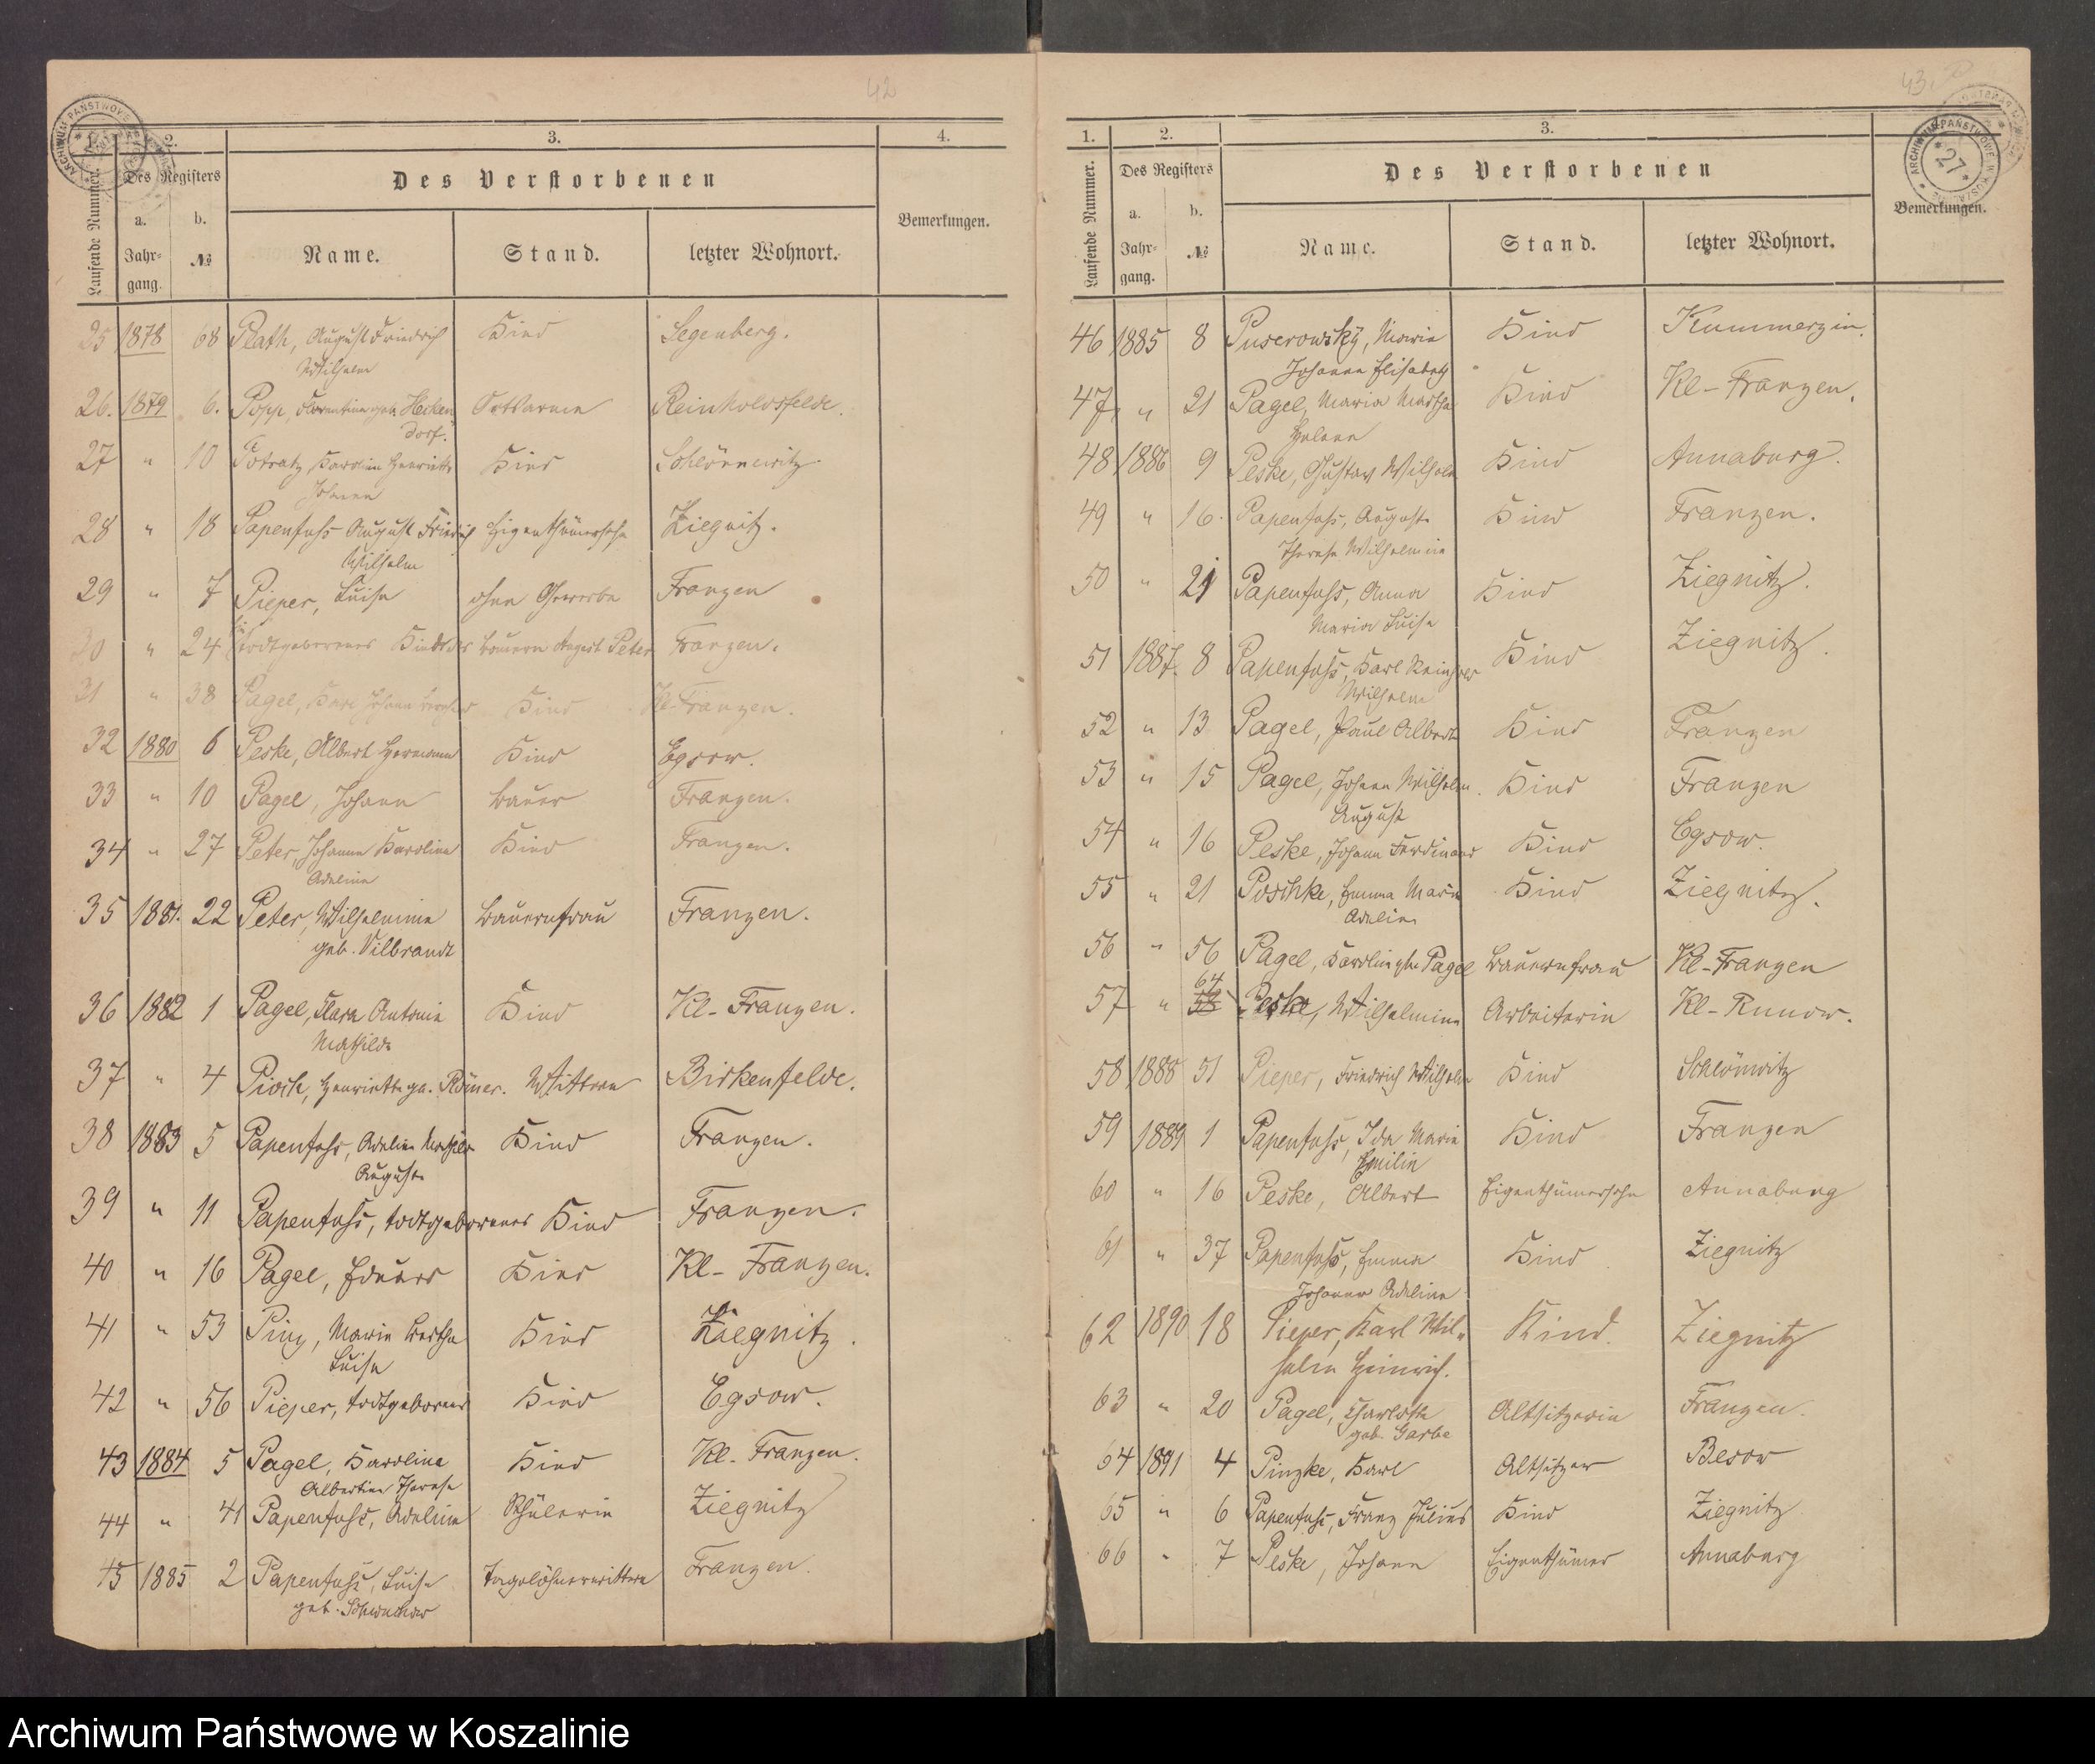 42
1. 2. 3. 4.
Laufende Nummer. Des Registers Des Verstorbenen Bemerkungen.
a. b.
Jahrgang. № Name. Stand. letzter Wohnort.
25 1878 68 Plath, August Friedrich Kind Segenberg.
Wilhelm
26. 1879 6. Popp, Florentine geb. Hecken- Ortsarme Reinholdsfelde.
dorf.
27 " 10 Potratz Karoline Henriette Kind Schlönnewitz
Johanne
28 " 18 Papenfuss August Friedrich Eigenthümersohn Ziegnitz.
Wilhelm
29 " 7 Pieper, Luise ohne Gewerbe Franzen
30 " 24 Ein todtgeborenes Kind des Bauern August Peter Franzen.
31 " 38 Pagel, Karl Johann Kind Kl-Franzen.
32 1880 6 Peske, Albert Hermann Kind Egsow.
33 " 10 Pagel, Johann Bauer Franzen.
34 " 27 Peter, Johanne Karoline Kind Franzen.
Adeline
35 1881. 22 Peter, Wilhelmine Bauernfrau Franzen.
geb. Vilbrandt
36 1882 1 Pagel, Clara Antonie Kind Kl-Franzen.
Mathilde
37 " 4 Pioch, Henriette ge. Römer. Wittwe Birkenfelde.
38 1883 5 Papenfuss, Adeline Mathilde Kind Franzen.
Auguste
39 " 11 Papenfuss, todtgeborenes Kind Franzen.
40 " 16 Pagel, Eduard Kind Kl- Franzen.
41 " 53 Pinz, Marie Bertha Kind Ziegnitz.
Luise
42 " 56 Pieper, todtgeborenes Kind Egsow.
43 1884 5 Pagel, Karoline Kind Kl-Franzen.
Albertine Therese
44 " 41 Papenfuss, Adeline Schülerin Ziegnitz
45 1885 2 Papenfuss, Luise Tagelöhnerwittwe Franzen.
geb.
43.
1. 2. 3.
Laufende Nummer. Des Registers Des Verstorbenen Bemerkungen.
a. b.
Jahrgang. № Name. Stand. letzter Wohnort.
46 1885 8 Puserowsky, Marie Kind Kummerzin.
Johanna Elisabeth
47 " 21 Pagel, Maria Martha Kind Kl-Franzen.
Helene
48 1886 9 Peske, Gustav Wilhelm Kind Annaburg.
49 " 16. Papenfuss, Auguste Kind Franzen.
Therese Wilhelmine
50 " 21 Papenfuss, Anna Kind Ziegnitz.
Maria Luise
51 1887. 8 Papenfuss, Karl Reinhold Kind Ziegnitz.
Wilhelm
52 " 13 Pagel, Paul Albert Kind Franzen
53 " 15 Pagel, Johann Wilhelm Kind Franzen
August
54 " 16 Peske, Johann Ferdinand Kind Egsow.
55 " 21 Poschke, Emma Marie Kind Ziegnitz.
Adeline
56 " 56 Pagel, Karoline geb. Pagel Bauernfrau Kl-Franzen
57 " 64 58 Peske, Wilhelmine Arbeiterin Kl-Runow.
58 1888 51 Pieper, Friedrich Wilhelm Kind Schlönwitz
59 1889 1 Papenfuss, Ida Marie Kind Franzen
Emilie
60 " 16 Peske, Albert Eigenthümersohn Annaburg
61 " 37 Papenfuss, Emma Kind Ziegnitz
Johanna Adeline
62 1890 18 Pieper, Karl Wil- Kind. Ziegnitz
helm Heinrich.
63 " 20 Pagel, Charlotte Altsitzerin Franzen.
geb. Garbe
64 1891 4 Pinzke, Karl Altsitzer Besow
65 " 6 Papenfuss, Franz Julius Kind Ziegnitz
66 " 7 Peske, Johann Eigenthümer Annaburg
ARCHIWUM PAŃSTWOWE
27
Archiwum Państwowe w Koszalinie